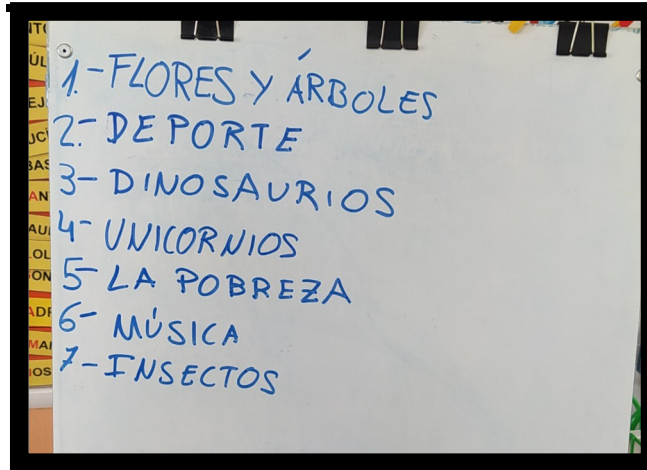 1.-FLORES Y ÁRBOLES
2.-DEPORTE
3-DINOSAURIOS
4-UNICORNIOS
5-LA POBREZA
6-MÚSICA
7-INSECTOS